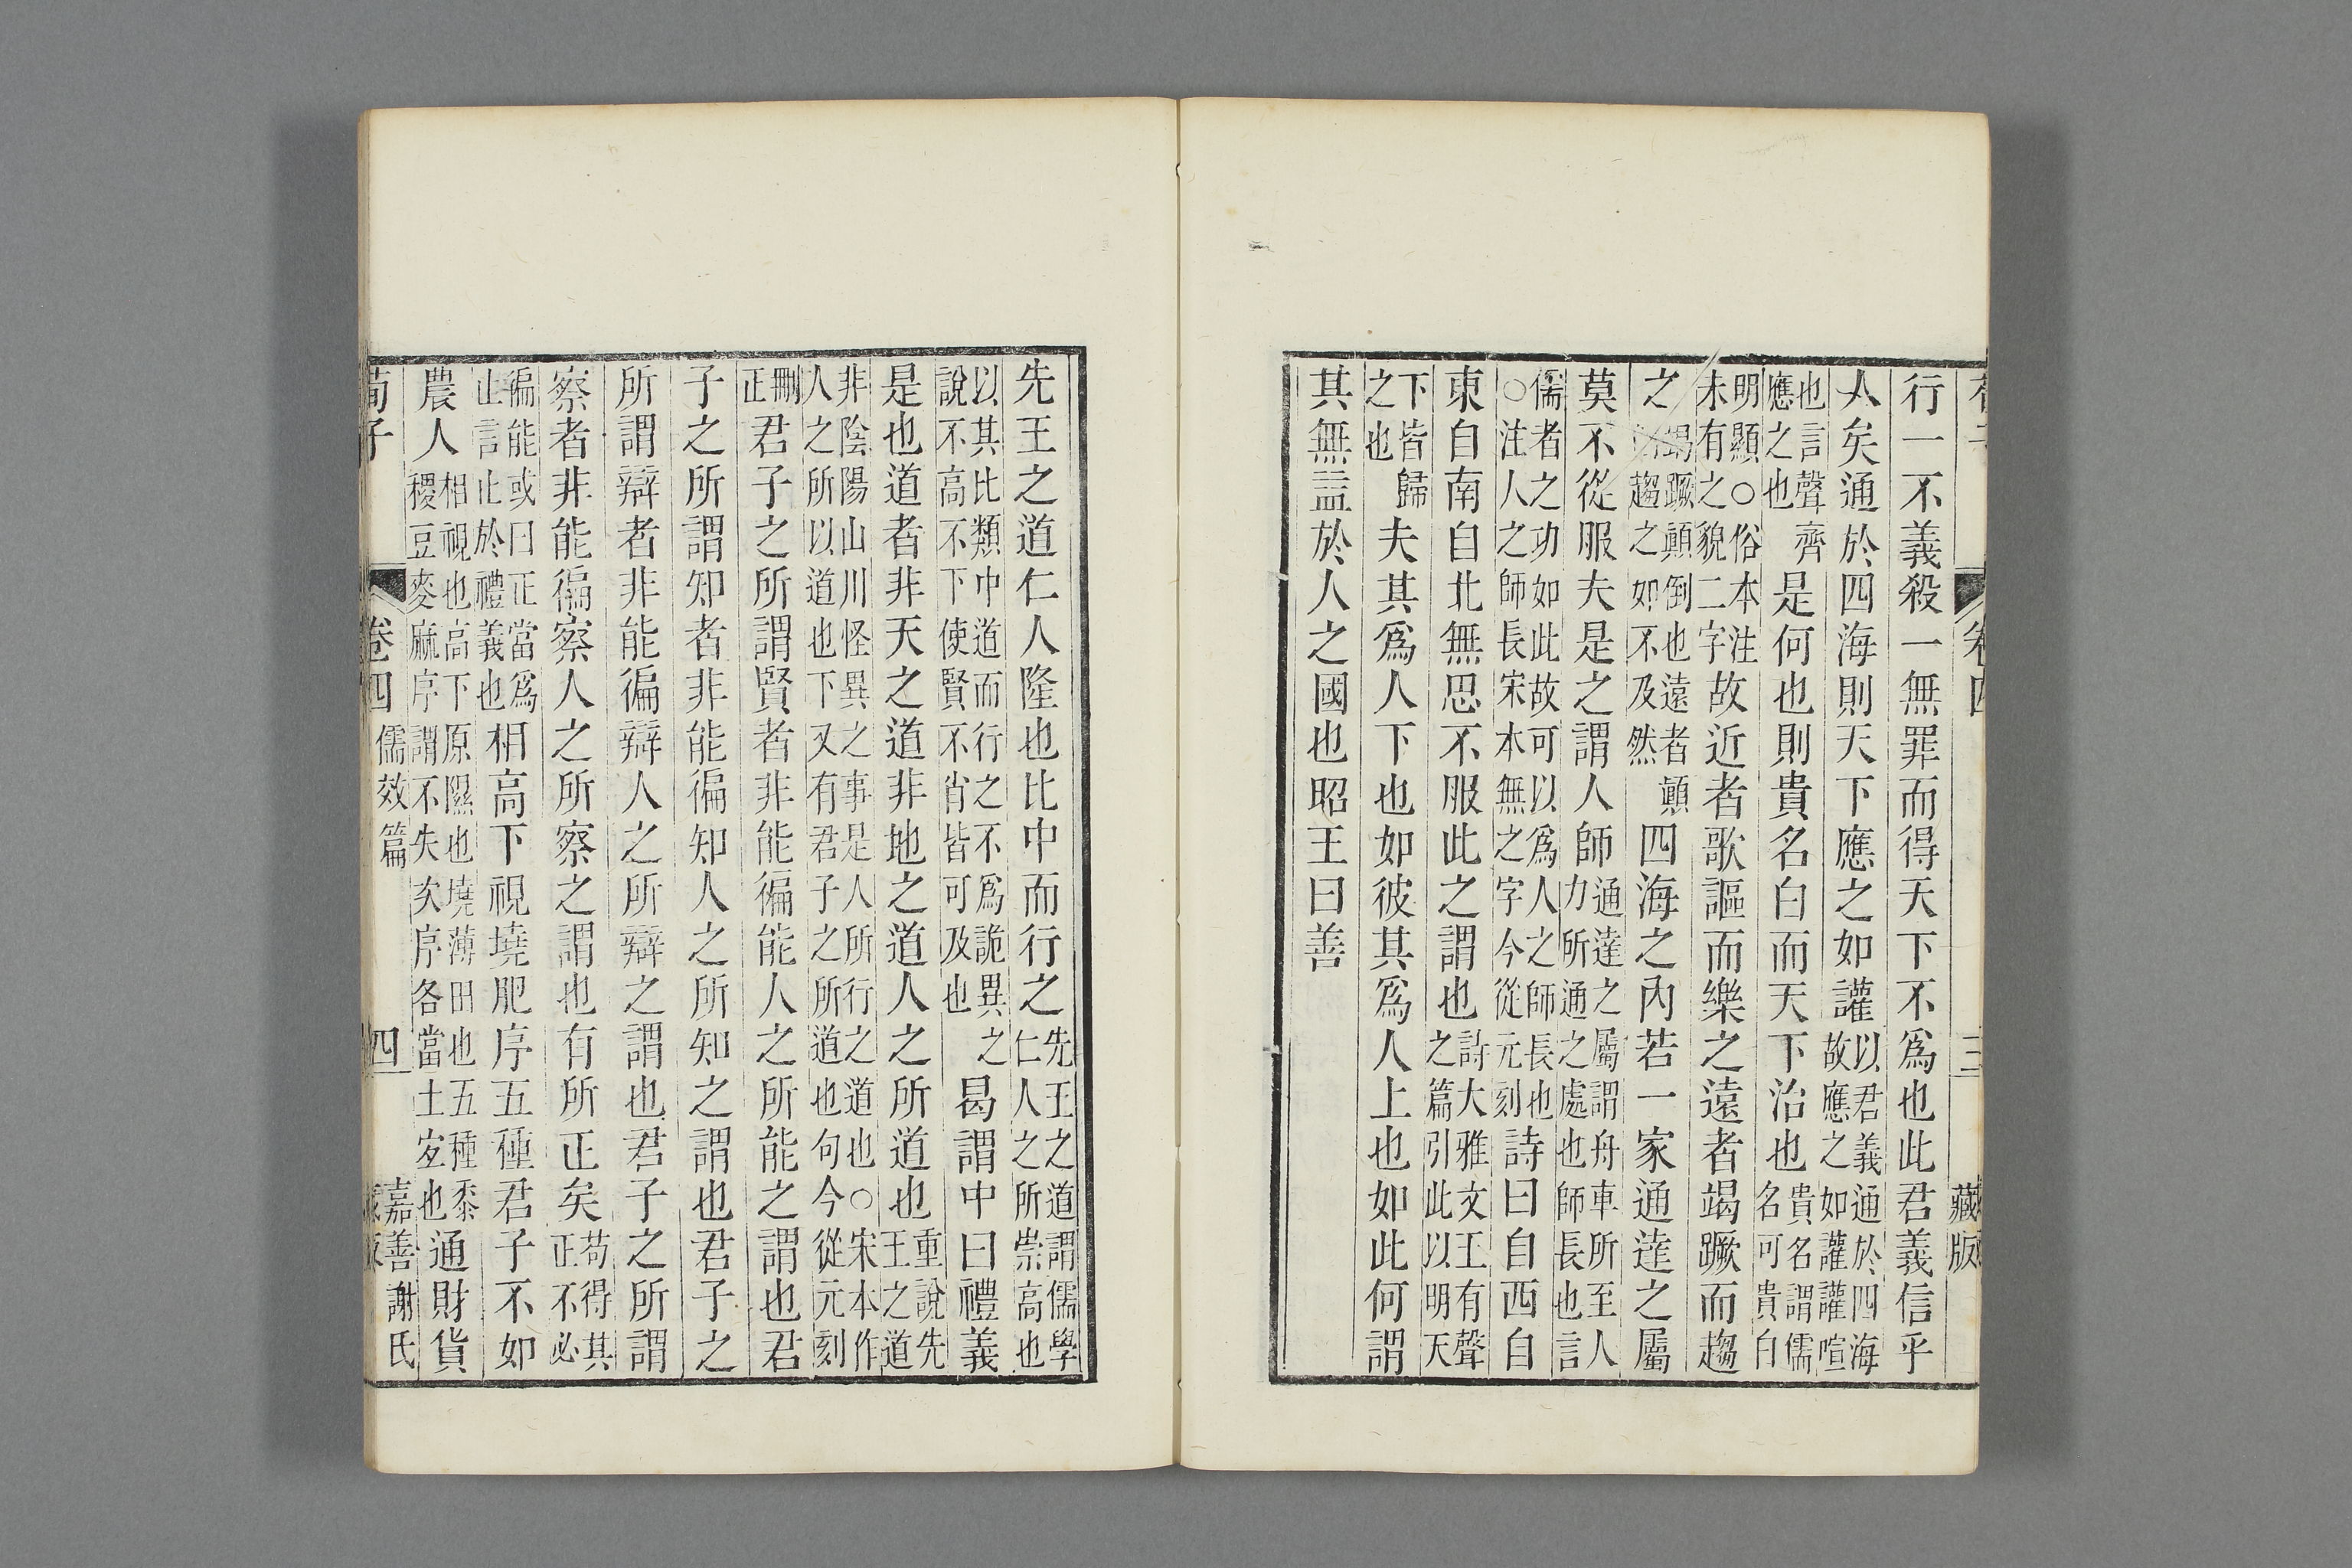 行一不義殺一無罪而得天下不爲也此君義信乎
人矣通於四海則天下應之如讙以君義通於四海故應之如讙讙喧
也言聲齊應之也是何也則貴名白而天下治也貴名謂儒名可貴白
明顯○俗本注未有之貌二字故近者歌謳而樂之遠者竭蹶而趨
之竭蹶顚倒也遠者顚趨之如不及然四海之內若一家通達之屬
莫不從服夫是之謂人師通達之屬謂舟車所至人力所通之處也師長也言
儒者之功如此故可以爲人之師長也○注人之師長宋本無之字今從元刻詩曰自西自
東自南自北無思不服此之謂也詩大雅文王有聲之篇引此以明天
下皆歸之也夫其爲人下也如彼其爲人上也如此何謂
其無益於人之國也昭王曰善
卷四
三
藏版
先王之道仁人隆也比中而行之先王之道謂儒學仁人之所崇高也
以其比類中道而行之不爲詭異之說不高不下使賢不肖皆可及也曷謂中曰禮義
是也道者非天之道非地之道人之所道也重說先王之道
非陰陽山川怪異之事是人所行之道也○宋本作人之所以道也下又有君子之所道也句今從元刻
刪正君子之所謂賢者非能徧能人之所能之謂也君
子之所謂知者非能徧知人之所知之謂也君子之
所謂辯者非能徧辯人之所辯之謂也君子之所謂
察者非能徧察人之所察之謂也有所正矣苟得其正不必
徧能或曰正當爲止言止於禮義也相高下視墝肥序五種君子不如
農人相視也高下原隰也墝薄田也五種黍稷豆麥麻序謂不失次序各當土宜也通財貨
荀子
卷四
儒效篇
四
嘉善謝氏
藏版